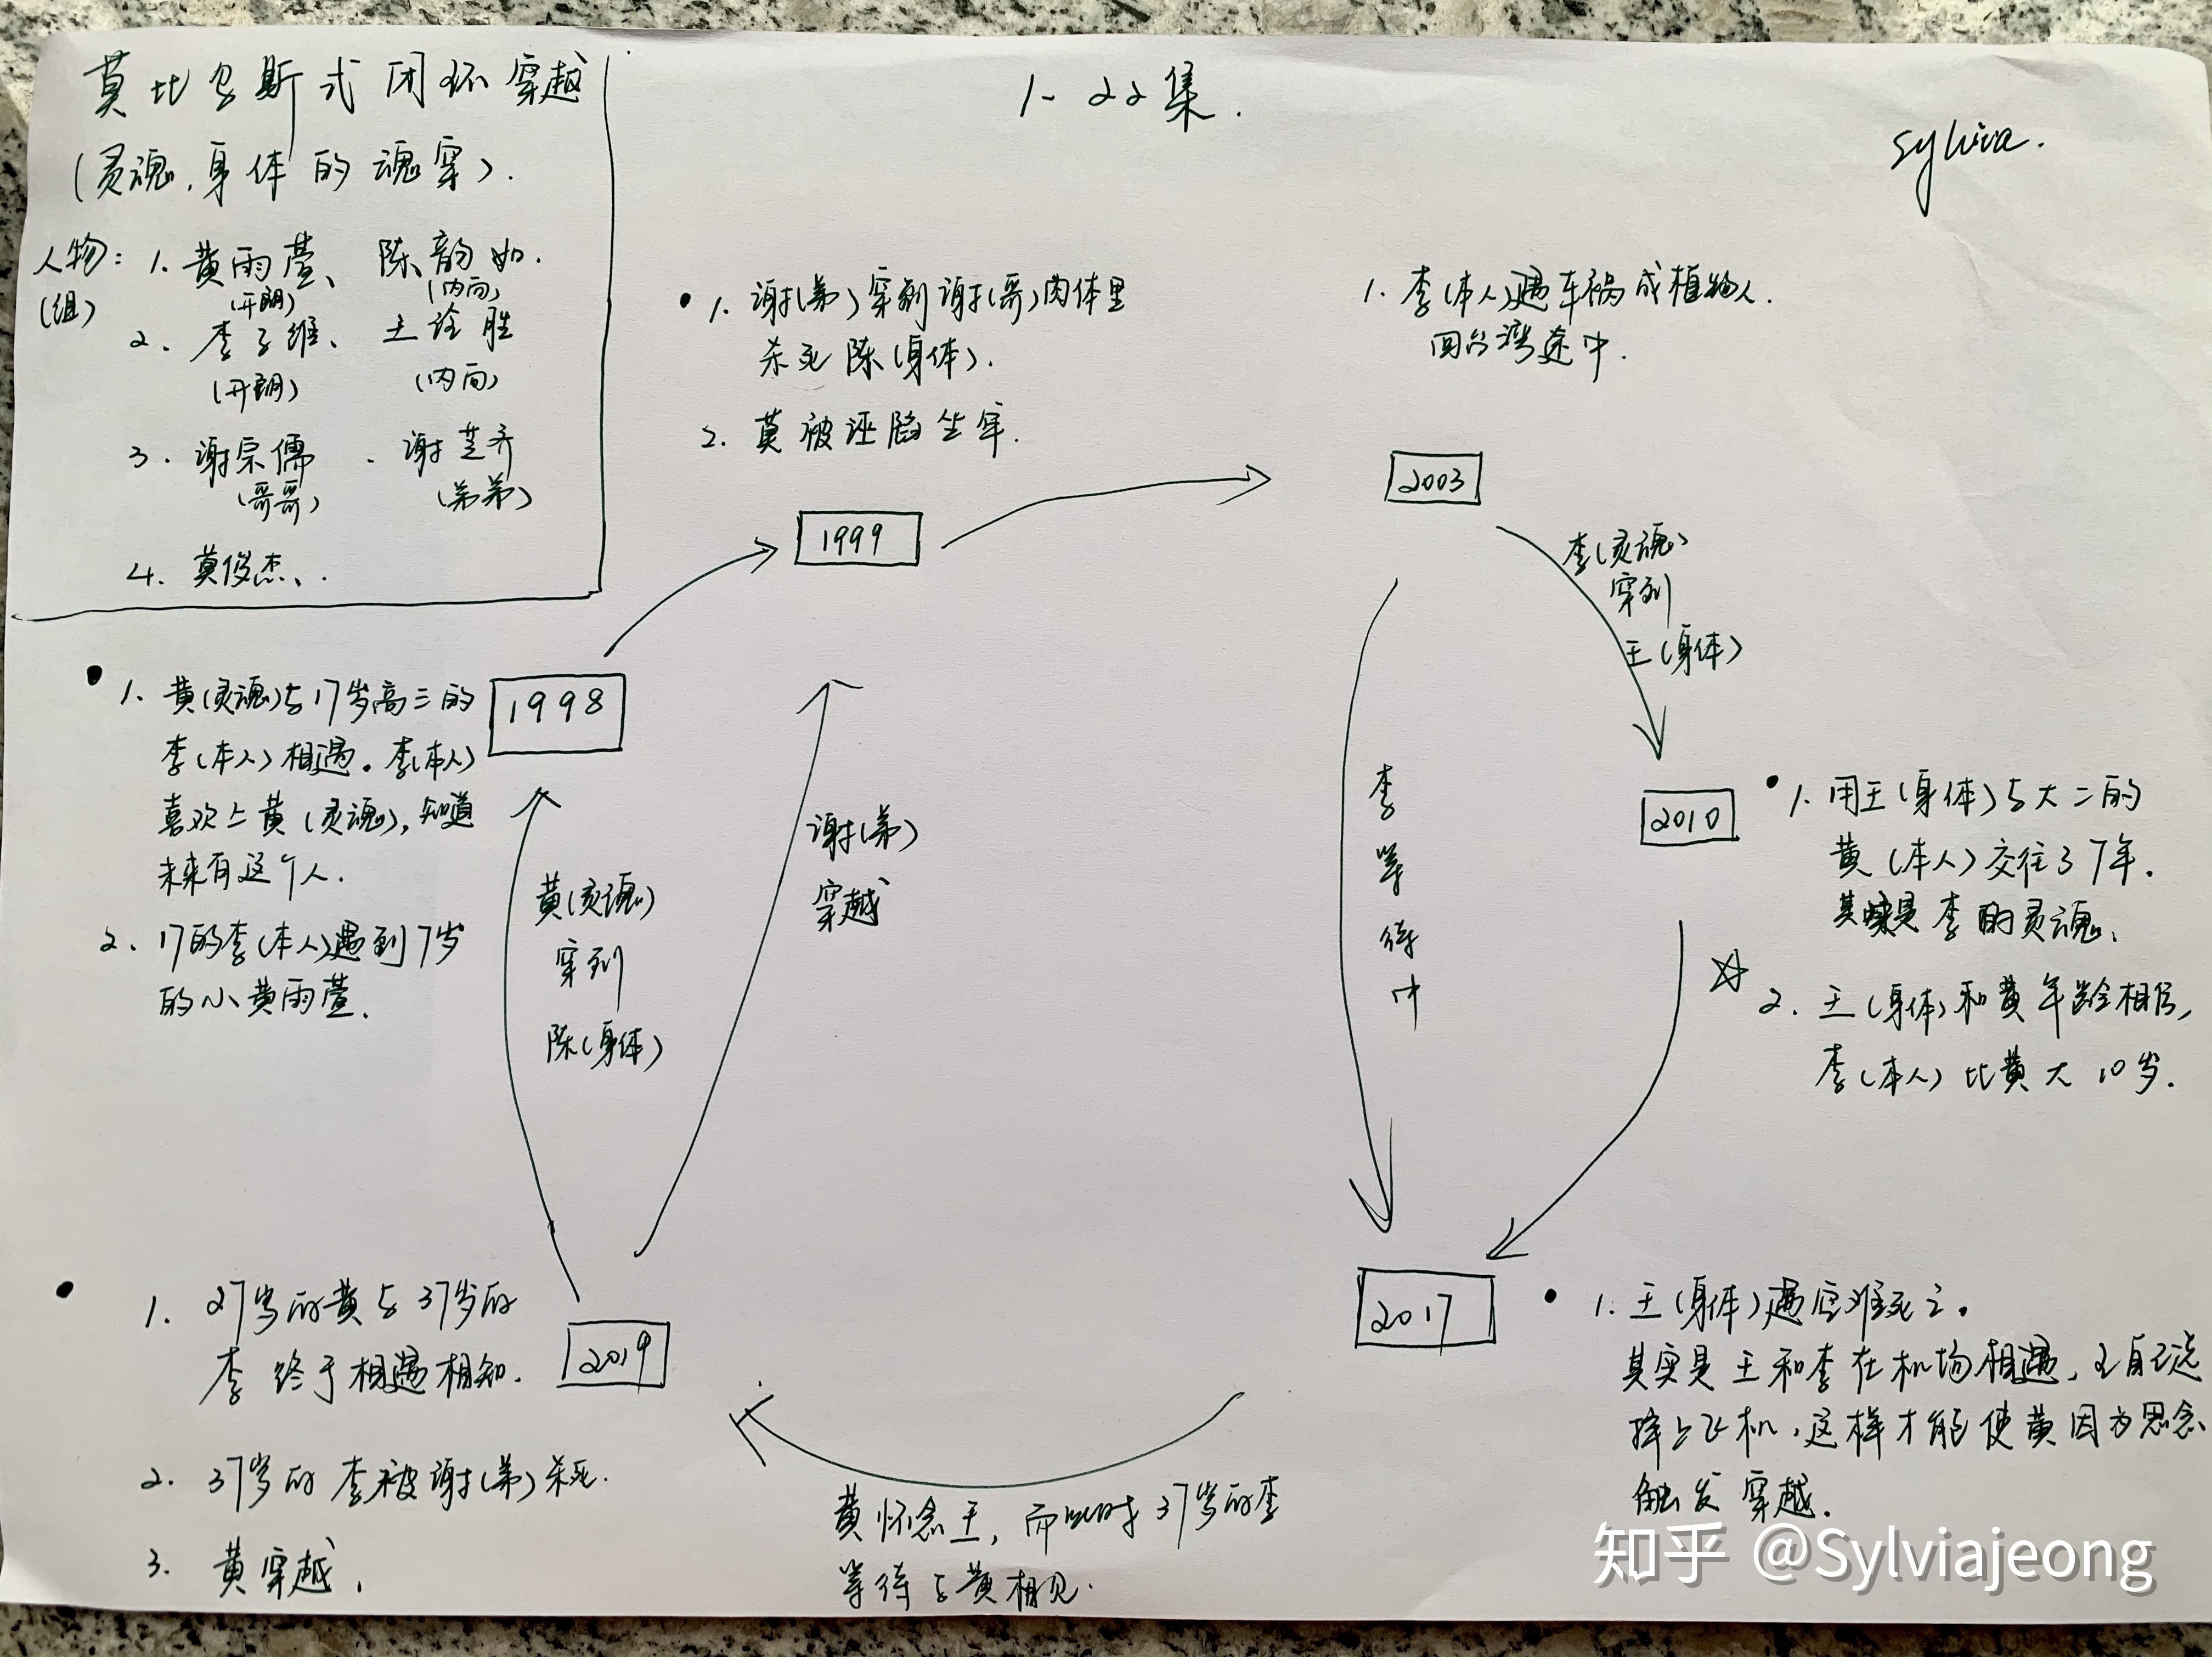 莫比乌斯式闭环穿越
(灵魂,身体的魂穿).
1-22集.
Sylvia.
人物: 1. 黄雨萱、 陈韵如.
(组) (开朗) (内向)
2. 李子维、 王诠胜
(开朗) (内向)
3. 谢宗儒 . 谢芝齐
(哥哥) (弟弟)
4. 莫俊杰、.
• 1. 谢(弟)穿到谢(哥)肉体里
杀死陈(身体).
2. 莫被诬陷坐牢.
1. 李(本人)遇车祸成植物人.
回台湾途中.
1999
2003
李(灵魂)
穿到
王(身体)
1998
• 1. 黄(灵魂)与17岁高三的
李(本人)相遇. 李(本人)
喜欢上黄(灵魂), 知道
未来有这个人.
2. 17的李(本人)遇到7岁
的小黄雨萱.
黄(灵魂)
穿到
陈(身体)
谢(弟)
穿越
李等待中
2010
• 1. 用王(身体)与大二的
黄(本人)交往了7年.
其实是李的灵魂.
☆ 2. 王(身体)和黄年龄相仿,
李(本人)比黄大10岁.
• 1. 27岁的黄与37岁的
李终于相遇相知.
2. 37岁的李被谢(弟)杀死.
3. 黄穿越.
2019
2017
• 1. 王(身体)遇空难死亡.
其实是王和李在机场相遇,王自己选
择上飞机,这样才能使黄因为思念
触发穿越.
黄怀念王, 而此时37岁的李
等待与黄相见.
知乎 @Sylviajeong